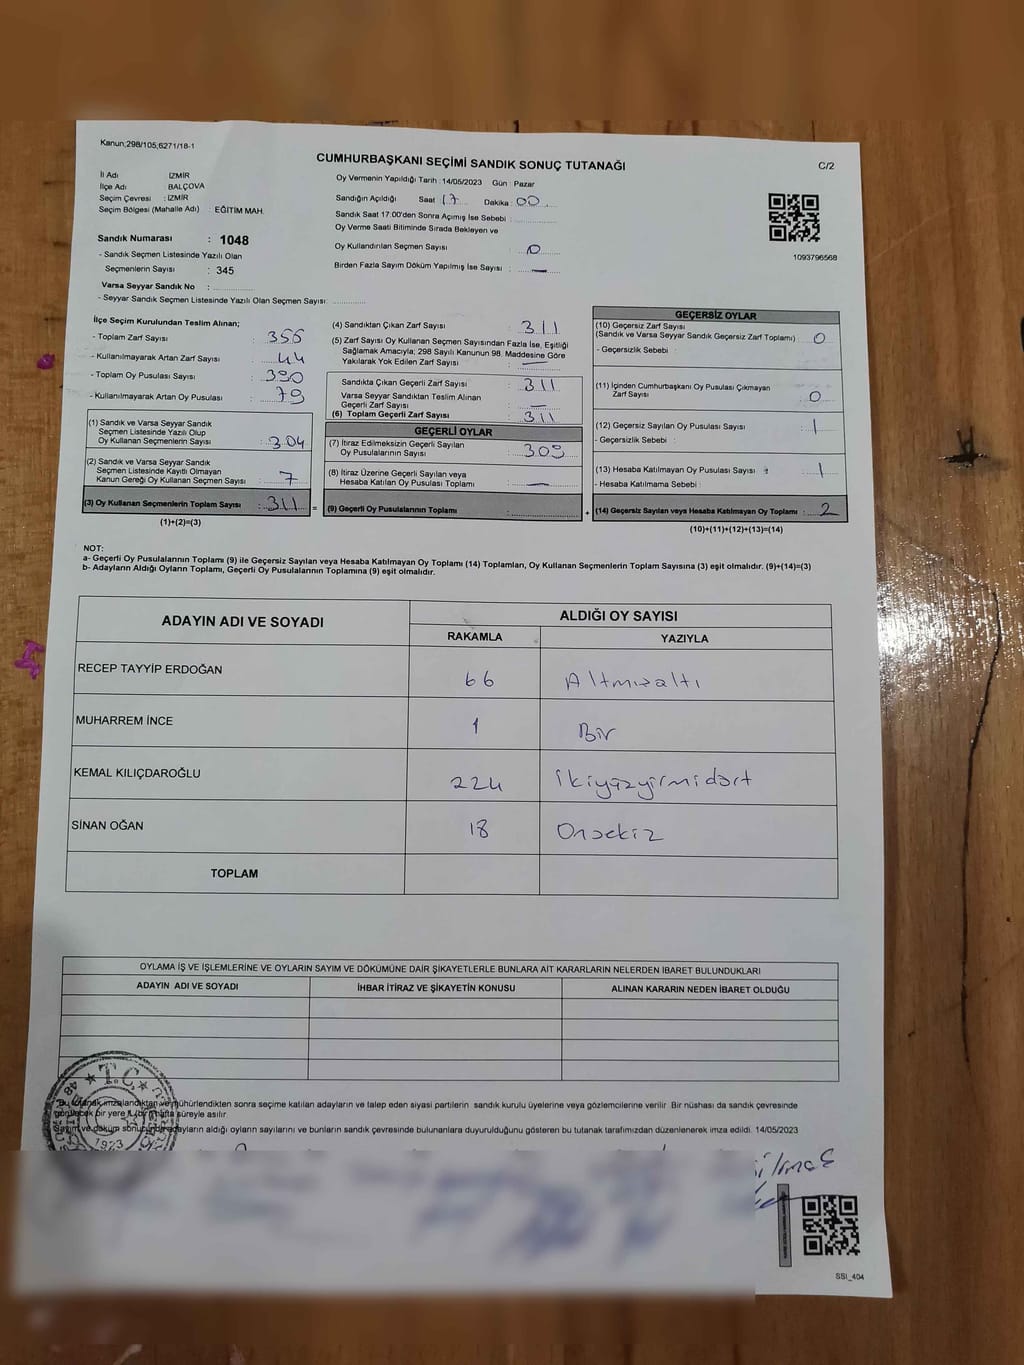 Kanun;298/105;6271/18-1
CUMHURBAŞKANI SEÇİMİ SANDIK SONUÇ TUTANAĞI
C/2
İl Adı İZMİR
İlçe Adı BALÇOVA
Seçim Çevresi : İZMİR
Seçim Bölgesi (Mahalle Adı) : EĞİTİM MAH.
Sandık Numarası : 1048
- Sandık Seçmen Listesinde Yazılı Olan
Seçmenlerin Sayısı : 345
Varsa Seyyar Sandık No :
- Seyyar Sandık Seçmen Listesinde Yazılı Olan Seçmen Sayısı:
Oy Vermenin Yapıldığı Tarih : 14/05/2023 Gün : Pazar
Sandığın Açıldığı Saat : 17 Dakika : 00
Sandık Saat 17:00'den Sonra Açımış İse Sebebi :
Oy Verme Saati Bitiminde Sırada Bekleyen ve
Oy Kullandırılan Seçmen Sayısı : 0
Birden Fazla Sayım Döküm Yapılmış İse Sayısı : —
1093796568
İlçe Seçim Kurulundan Teslim Alınan;
- Toplam Zarf Sayısı : 355
- Kullanılmayarak Artan Zarf Sayısı : 44
- Toplam Oy Pusulası Sayısı : 390
- Kullanılmayarak Artan Oy Pusulası : 79
(1) Sandık ve Varsa Seyyar Sandık
Seçmen Listesinde Yazılı Olup
Oy Kullanan Seçmenlerin Sayısı : 304
(2) Sandık ve Varsa Seyyar Sandık
Seçmen Listesinde Kayıtlı Olmayan
Kanun Gereği Oy Kullanan Seçmen Sayısı : 7
(3) Oy Kullanan Seçmenlerin Toplam Sayısı : 311 =
(1)+(2)=(3)
(4) Sandıktan Çıkan Zarf Sayısı : 311
(5) Zarf Sayısı Oy Kullanan Seçmen Sayısından Fazla İse, Eşitliği
Sağlamak Amacıyla; 298 Sayılı Kanunun 98. Maddesine Göre
Yakılarak Yok Edilen Zarf Sayısı : —
Sandıkta Çıkan Geçerli Zarf Sayısı : 311
Varsa Seyyar Sandıktan Teslim Alınan
Geçerli Zarf Sayısı : —
(6) Toplam Geçerli Zarf Sayısı : 311
GEÇERLİ OYLAR
(7) İtiraz Edilmeksizin Geçerli Sayılan
Oy Pusulalarının Sayısı : 309
(8) İtiraz Üzerine Geçerli Sayılan veya
Hesaba Katılan Oy Pusulası Toplamı : —
(9) Geçerli Oy Pusulalarının Toplamı : +
GEÇERSİZ OYLAR
(10) Geçersiz Zarf Sayısı
(Sandık ve Varsa Seyyar Sandık Geçersiz Zarf Toplamı) : 0
- Geçersizlik Sebebi :
(11) İçinden Cumhurbaşkanı Oy Pusulası Çıkmayan
Zarf Sayısı : 0
(12) Geçersiz Oy Pusulası Sayısı : 1
- Geçersizlik Sebebi :
(13) Hesaba Katılmayan Oy Pusulası Sayısı : 1
- Hesaba Katılmama Sebebi :
(14) Geçersiz Sayılan veya Hesaba Katılmayan Oy Toplamı : 2
(10)+(11)+(12)+(13)=(14)
NOT:
a- Geçerli Oy Pusulalarının Toplamı (9) ile Geçersiz Sayılan veya Hesaba Katılmayan Oy Toplamı (14) Toplamları, Oy Kullanan Seçmenlerin Toplam Sayısına (3) eşit olmalıdır. (9)+(14)=(3)
b- Adayların Aldığı Oyların Toplamı, Geçerli Oy Pusulalarının Toplamına (9) eşit olmalıdır.
ADAYIN ADI VE SOYADI
ALDIĞI OY SAYISI
RAKAMLA YAZIYLA
RECEP TAYYİP ERDOĞAN 66 Altmışaltı
MUHARREM İNCE 1 Bir
KEMAL KILIÇDAROĞLU 224 İkiyüzyirmidört
SİNAN OĞAN 18 Onsekiz
TOPLAM
OYLAMA İŞ VE İŞLEMLERİNE VE OYLARIN SAYIM VE DÖKÜMÜNE DAİR ŞİKAYETLERLE BUNLARA AİT KARARLARIN NELERDEN İBARET BULUNDUKLARI
ADAYIN ADI VE SOYADI İHBAR İTİRAZ VE ŞİKAYETİN KONUSU ALINAN KARARIN NEDEN İBARET OLDUĞU
T.C.
1923
Bu tutanak imzalandıktan ve mühürlendikten sonra seçime katılan adayların ve talep eden siyasi partilerin sandık kurulu üyelerine veya gözlemcilerine verilir. Bir nüshası da sandık çevresinde
görülecek bir yere bir hafta süreyle asılır.
Sayım ve döküm sonunda adayların aldığı oyların sayılarını ve bunların sandık çevresinde bulunanlara duyurulduğunu gösteren bu tutanak tarafımızdan düzenlenerek imza edildi. 14/05/2023
SSI_404